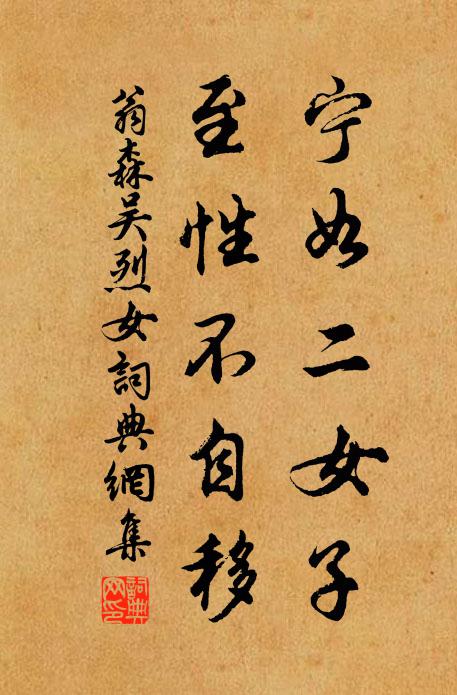 宁如二女子
至性不自移
翁森吴烈女詞典網集
詞典網印